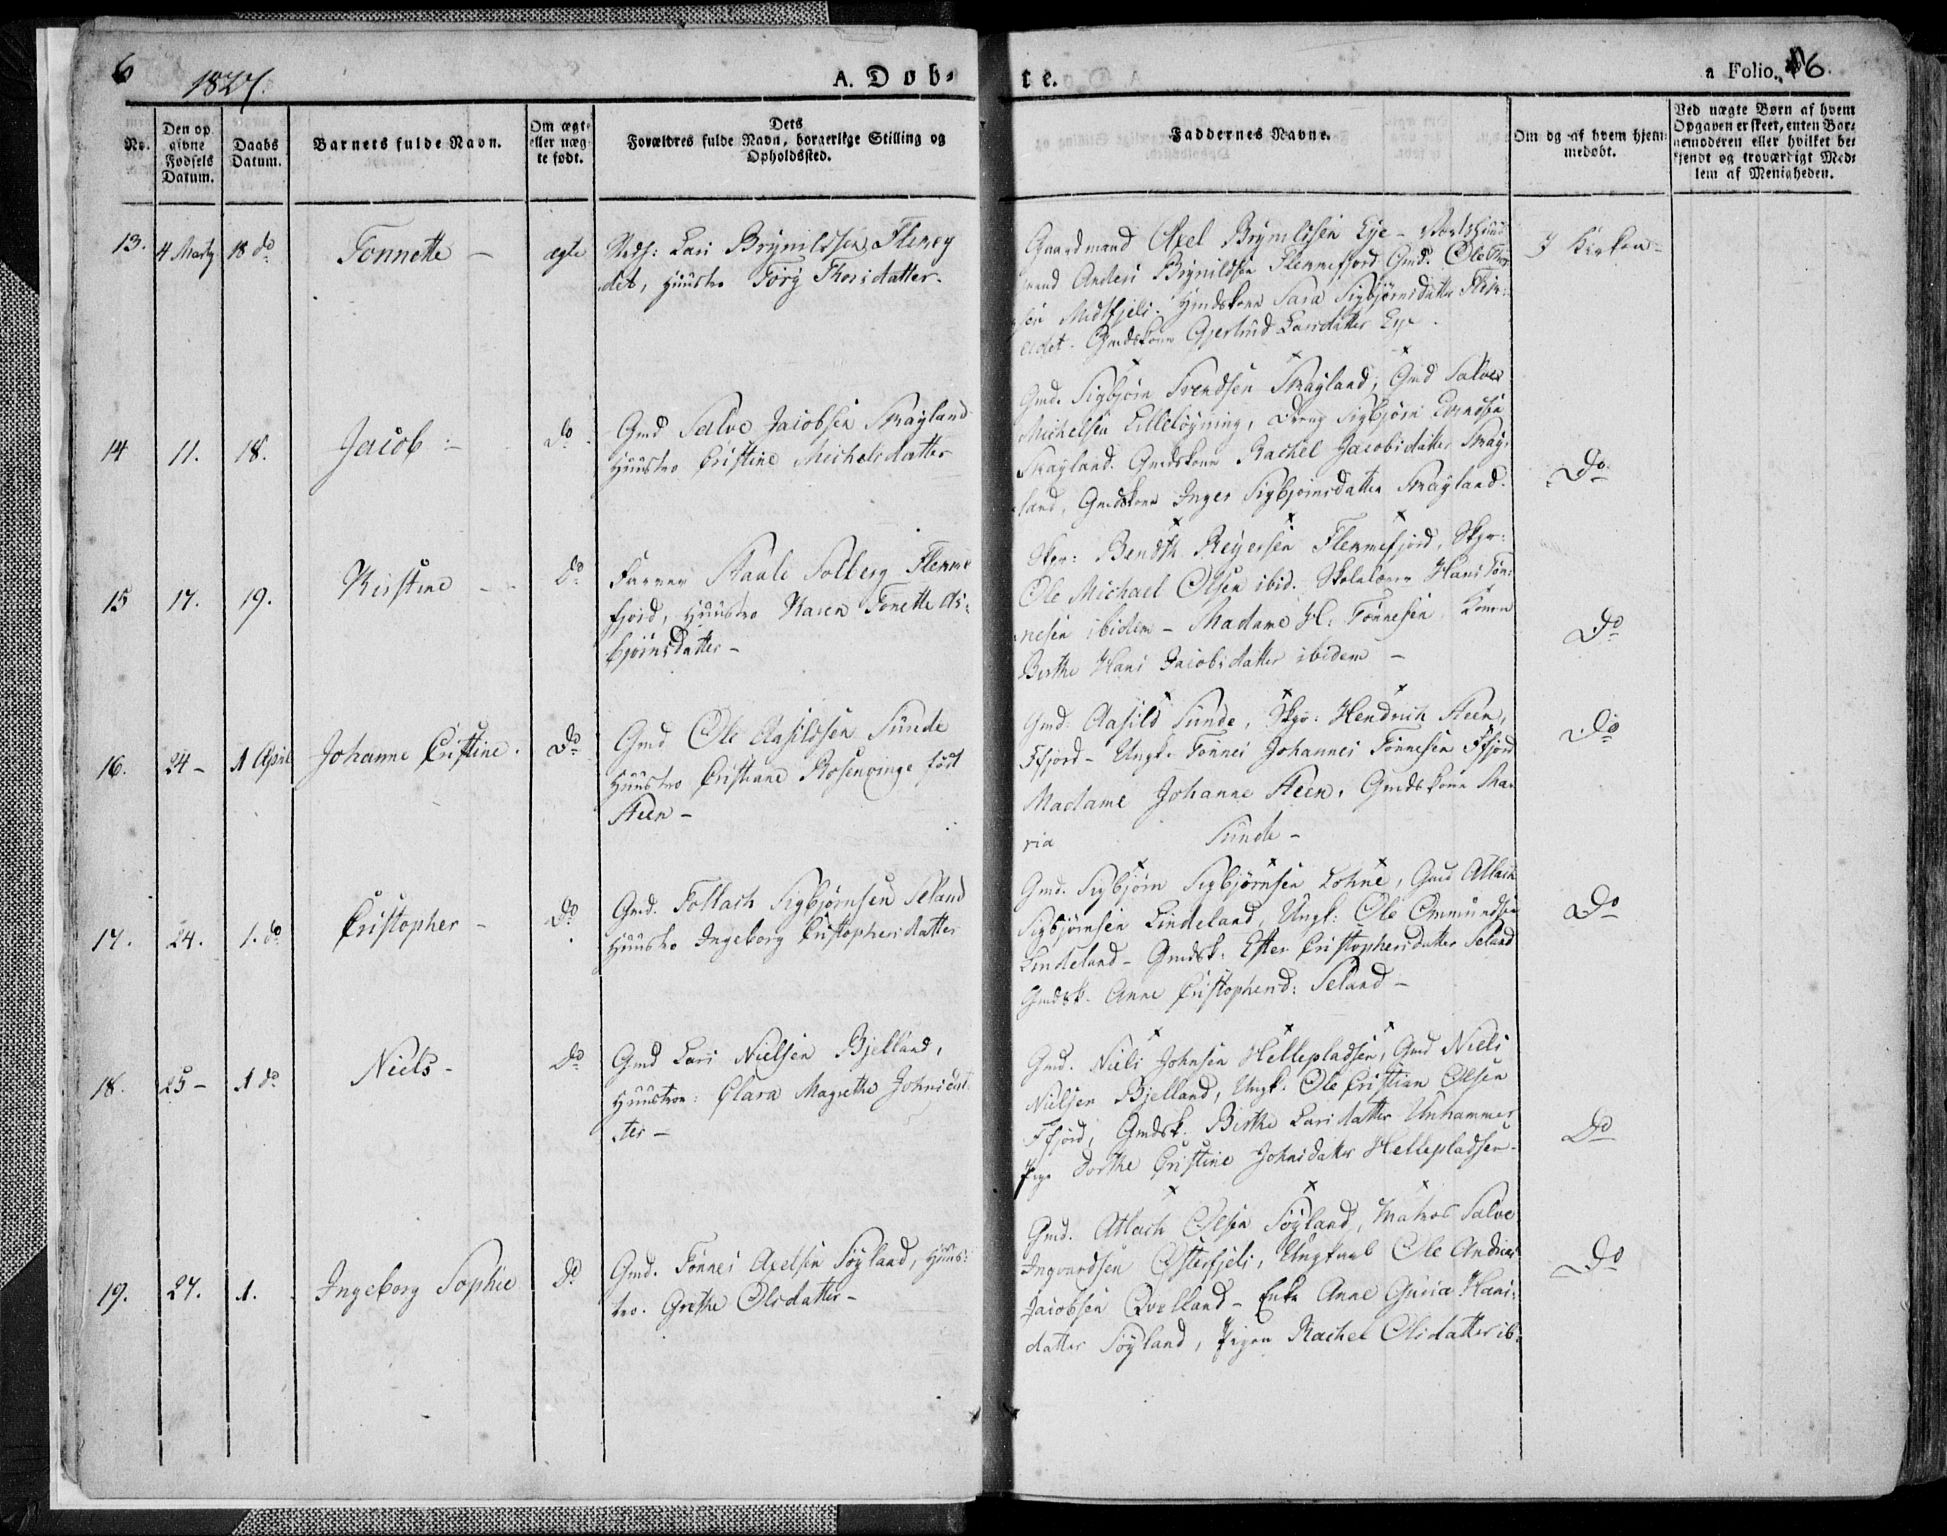 6
1827.
A. Dob-
te.
a Folio. 6.
No.
Den op
givne
Fødsels
Datum.
Daabs
Datum.
Barnets fulde Navn.
Om ægt-
eller uæg-
te født.
Dets
Forældres fulde Navn, borgerlige Stilling og
Opholdssted.
Faddernes Navne.
Om og af hvem hjem-
medøbt.
Ved uægte Børn af hvem
Opgaven er skeet, enten Bar-
nemoderen eller hvilket be-
kjendt og troværdigt Med-
lem af Menigheden.
13.
4 Marty
18 do
Tonnette -
ægte
Lars Brynildsen Flikey
det, Huustro Jørg Thorsdatter.
Gaardmand Axel Brynildsen Eye -
mand Anders Brynildsen Flekkefjord. Gmd. Ole Thor
sen Midtfjeld: Gmdskone Sara Sigbjørnsdatter Flik-
eidet. Gmdskone Gjertrud Larsdatter Eye.
I Kirken -
14
11.
18.
Jacob -
Do.
Gmd Salve Jacobsen Skageland
Huustro Cristine Michelsdatter
Gmd. Sigbjørn Svendsen Skageland, Gmd Salve
Michelsen Lilleløgning, Dreng Sigbjørn Trondsen
Skageland. Gmdskone Rachel Jacobsdatter Skage-
land, Gmdskone Inger Sigbjørnsdatter Skageland.
Do
15
17.
19.
Kirstine -
Do
Farver Staale Solberg Flekke
fjord, Huustro Karen Tonette As-
bjørnsdatter -
Skpr: Bendth Reyersen Flekkefjord, Skpr:
Ole Michael Olsen ibid. Skolelærer Hans Tøn-
nesen ibidem - Madame H: Tønnesen, Konen
Birthe Hans Jacobsdatter ibidem -
Do
16.
24 -
1 April
Johanne Cristine.
Do
Gmd Ole Aasildsen Sunde
Huustro Cristiane Rosenvinge født
Steen -
Gmd. Aasild Sunde, Skpr: Hendrich Steen,
Ffjord - Ungk. Tønnes Johannes Tønnesen Ffjord
Madame Johanne Steen. Gmdskone Ma-
ria Sunde -
Do
17.
24.
1. do
Cristopher -
Do.
Gmd. Tollach Sigbjørnsen Seland
Huustro Ingeborg Cristophersdatter
Gmd. Sigbjørn Sigbjørnsen Lohne, Gmd Atlach
Sigbjørnsen Lindeland, Ungk: Ole Ommundsen
Lindeland - Gmdsk: Ester Cristophersdatter Seland
Gmdsk. Anne Cristophersd: Seland -
Do
18.
25 -
1 do
Niels -
Do
Gmd Lars Nielsen Bjelland,
Huustroe: Clara Magrethe Johnsdat
ter -
Gmd. Niels Johnsen Hellepladsen, Gmd Niels
Nielsen Bjelland, Ungk. Ole Cristian Olsen
Ffjord, Gmdsk. Birthe Larsdatter Unhammer
Pige Dorthe Cristine Johnsdatter Hellepladsen -
Do
19.
27.
1.
Ingeborg Sophie
Do
Gmd. Tønnes Axelsen Søyland, Huus-
tro. Grethe Olsdatter -
Gmd. Atlach Olsen Søyland, Matros Salve
Ingvardsen Østerfjeld, Ungkarl Ole Andreas
Jacobsen Qvelland - Enke Anne Guria Hans-
datter Søyland, Pigen Rachel Olsdatter ib.
Do